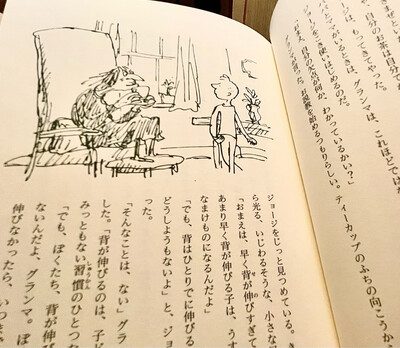 自分のお茶は自分で
は、もってきてやった。
がいるときは、グランマは、これほどでは
ジョージをこき使いはじめるのだ。
自分の欠点が何か、わかっているかい？」
お説教を始めるつもりらしい。ティーカップのふちの向こうから、
ジョージをじっと見つめている。き
ら光る、いじわるそうな、小さな
「おまえは、早く背が伸びすぎて
あまり早く背が伸びる子は、うす
なまけものになるんだよ」
「でも、背はひとりでに伸びる
どうしようもないよ」と、ジョ
った。
「そんなことは、ない」グラ
した。「背が伸びるのは、子ど
みっともない習慣のひとつ
「でも、ぼくたち、背が伸
ないんだよ、グランマ。ぼ
伸びなかったら、いつ